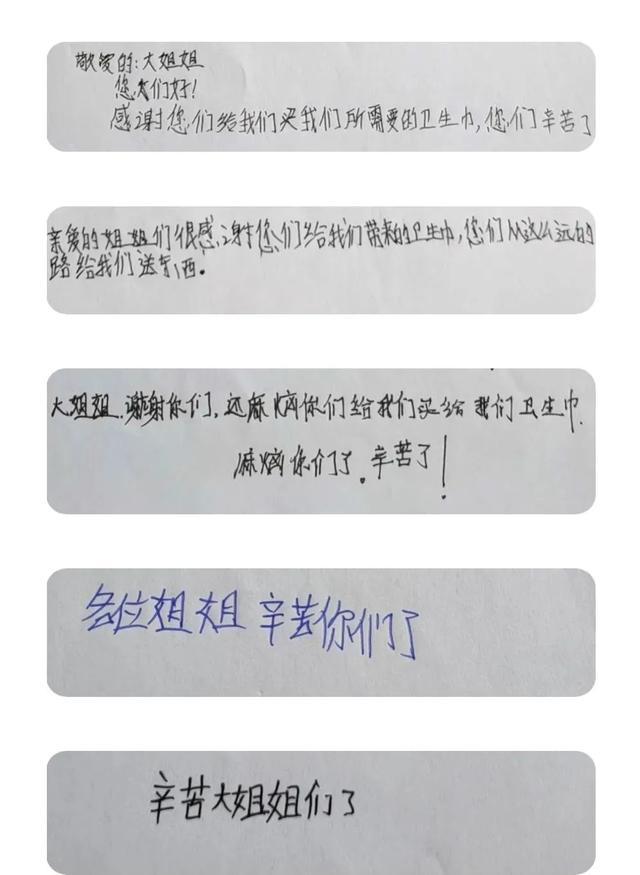 敬爱的:大姐姐
您们好!
感谢您们给我们买我们所需要的卫生巾,您们辛苦了
亲爱的姐姐们很感谢您们给我们带来的卫生巾,您们从这么远的
路给我们送东西.
大姐姐.谢谢你们,还麻烦你们给我们买给我们卫生巾.
麻烦你们了.辛苦了!
各位姐姐辛苦你们了
辛苦大姐姐们了